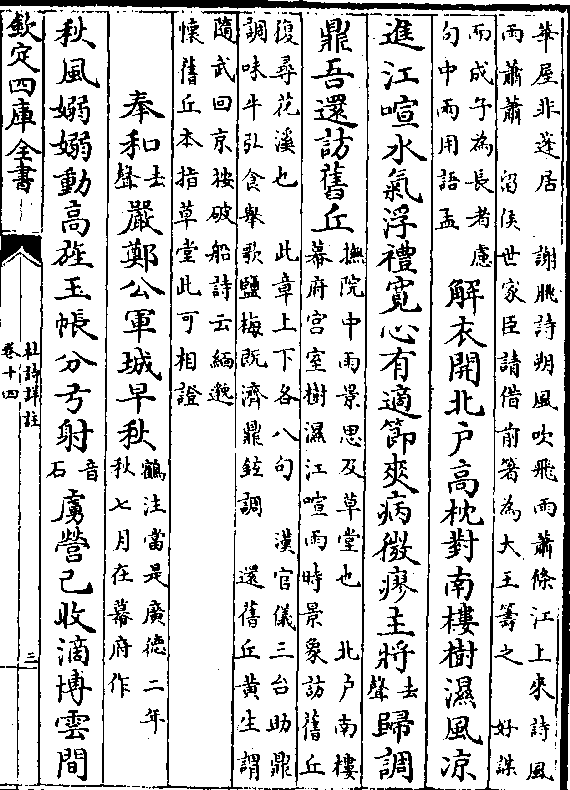 華屋非蓬居　謝朓詩朔風吹飛雨蕭條江上來詩風
雨蕭蕭　留侯世家臣請借前箸為大王籌之　好謀
而成子為長者慮
句中兩用語孟
解衣開北户高枕對南樓樹濕風凉
進江喧水氣浮禮寛心有適節爽病微瘳主將
去
聲
歸調
鼎吾還訪舊丘
撫院中雨景思及草堂也　北户南樓
幕府宫室樹濕江喧雨時景象訪舊丘
復尋花溪也　此章上下各八句　漢官儀三台助鼎
調味牛弘食舉歌鹽梅既濟鼎鉉調　還舊丘黄生謂
隨武回京按破船詩云緬邈
懷舊丘本指草堂此可相證
奉和
去
聲
嚴鄭公軍城早秋
鶴注當是廣徳二年
秋七月在幕府作
秋風嫋嫋動高旌玉帳分弓射
音
石
虜營已收滴博雲間
欽定四庫全書
杜詩詳註
卷十四
三